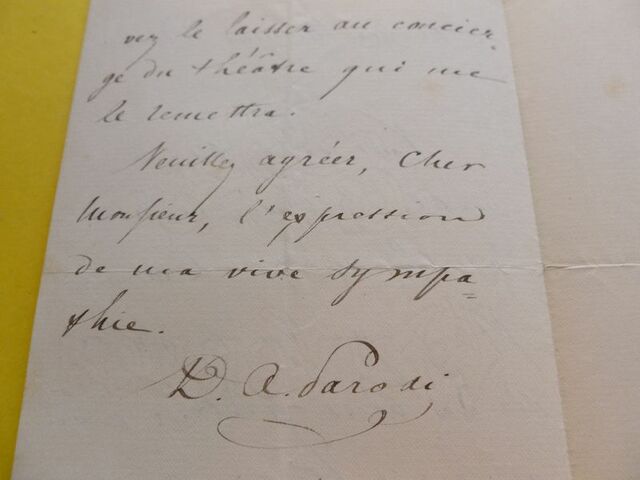 vez le laisser au concier-
ge du théâtre qui me
le remettra.
Veuillez agréer, Cher
Monsieur, l'expression
de ma vive sympa=
thie.
D. A. Parodi